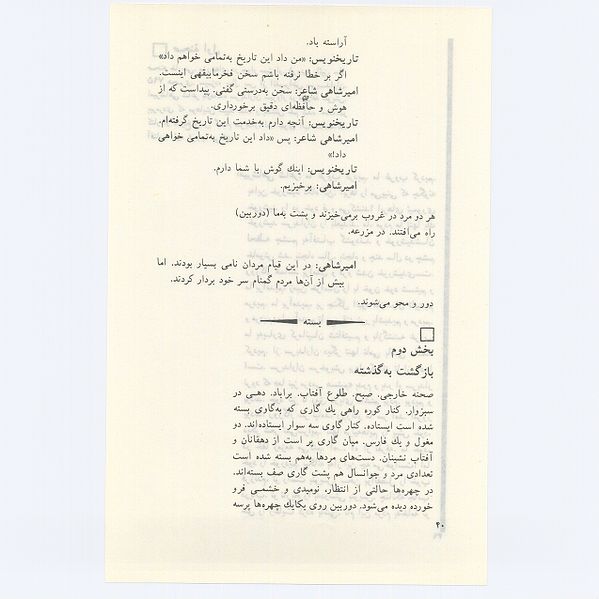 آراسته باد.
تاریخنویس: «من داد این تاریخ به‌تمامی خواهم داد»
اگر بر خطا نرفته باشم سخن فخرمابیقهی اینست.
امیرشاهی شاعر: سخن به‌درستی گفتی. پیداست که از
هوش و حافظه‌ای دقیق برخورداری.
تاریخنویس: آنچه دارم به‌خدمت این تاریخ گرفته‌ام.
امیرشاهی شاعر: پس «داد این تاریخ به‌تمامی خواهی
داد!»
تاریخنویس: اینك گوش با شما دارم.
امیرشاهی: برخیزیم.
هر دو مرد در غروب برمی‌خیزند و پشت به‌ما (دوربین)
راه می‌افتند. در مزرعه.
امیرشاهی: در این قیام مردان نامی بسیار بودند. اما
بیش از آن‌ها مردم گمنام سر خود بردار کردند.
دور و محو می‌شوند.
بسته
بخش دوم
بازگشت به‌گذشته
صحنه خارجی. صبح. طلوع آفتاب. براباد. دهی در
سبزوار. کنار کوره راهی یك گاری که به‌گاوی بسته
شده است ایستاده. کنار گاوی سه سوار ایستاده‌اند. دو
مغول و یك فارس. میان گاری پر است از دهقانان و
آفتاب نشینان. دست‌های مردها به‌هم بسته شده است
تعدادی مرد و جوانسال هم پشت گاری صف بسته‌اند.
در چهره‌ها حالتی از انتظار. نومیدی و خشمی فرو
خورده دیده می‌شود. دوربین روی یکایك چهره‌ها پرسه
۴۰